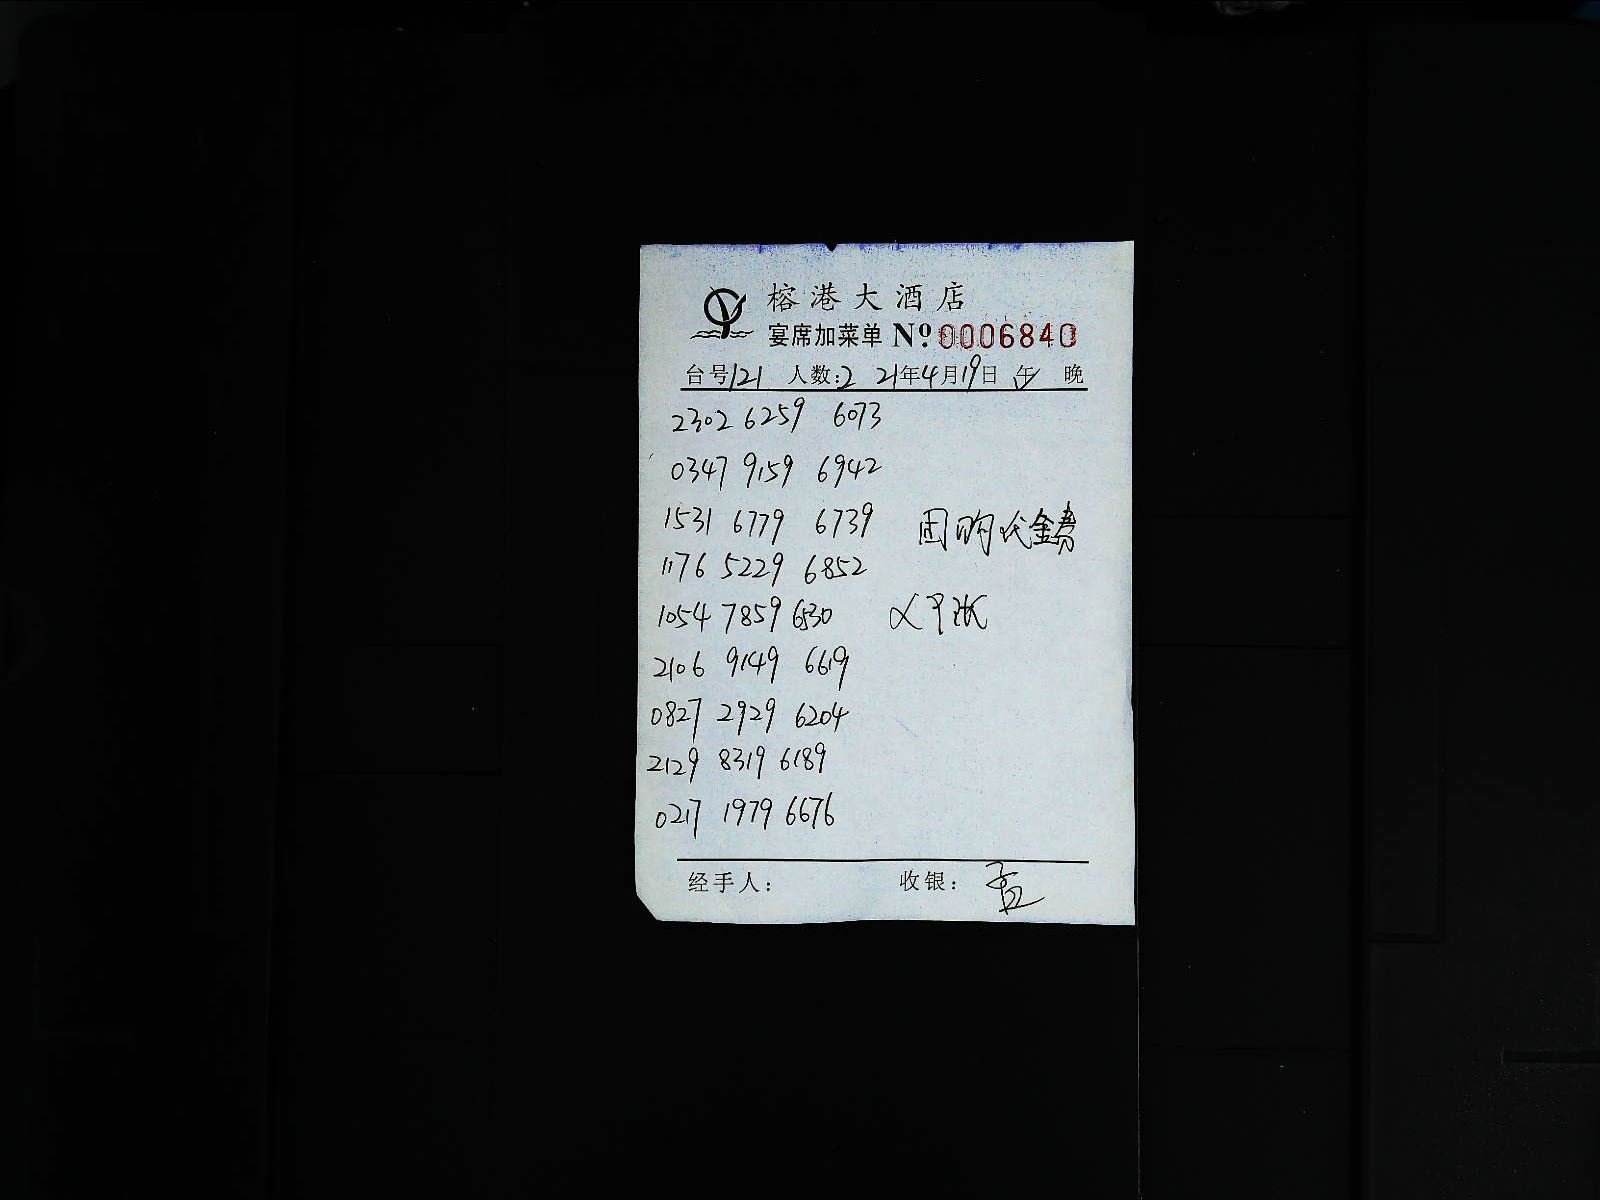 榕港大酒店
宴席加菜单 Nº 0006840
台号121 人数:2 21年4月19日 午 晚
2302 6259 6073
0347 9159 6942
1531 6779 6739
团购代金券
1176 5229 6852
1054 7859 6530
2106 9149 6619
0827 2929 6204
2129 8319 6189
0217 1979 6676
经手人: 收银: 孟